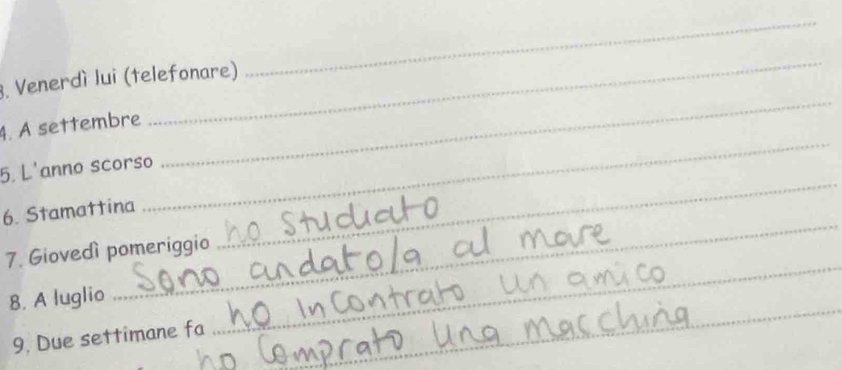 3. Venerdì lui (telefonare)
4. A settembre
5. L'anno scorso
6. Stamattina
7. Giovedì pomeriggio ho studiato
8. A luglio Sono andato/a al mare
9. Due settimane fa ho incontrato un amico
ho comprato una macchina